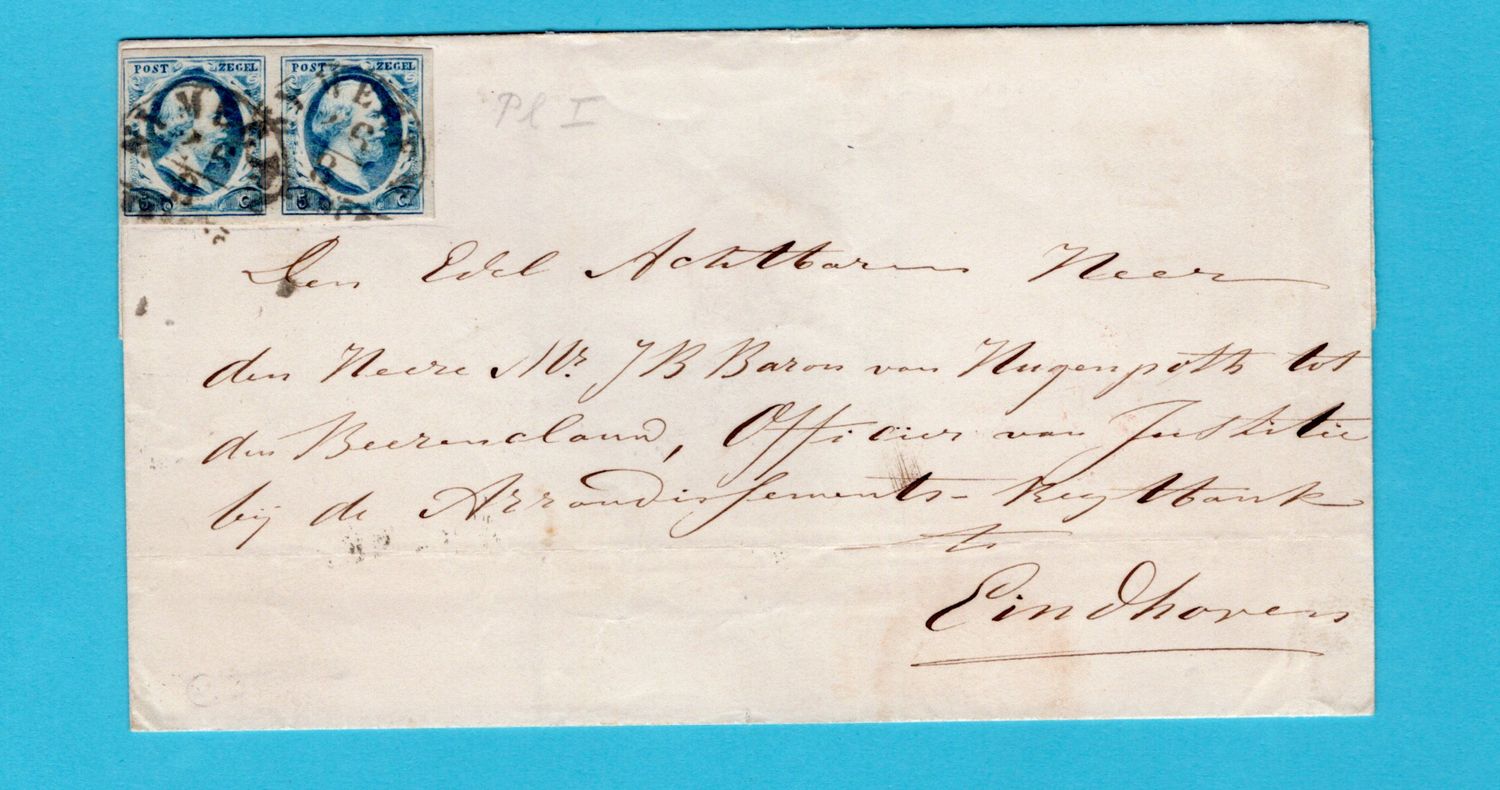 POST ZEGEL POST ZEGEL
5 C 5 C
Pl I
Den Edel Achtbaren Heer
den Heere Mr. J B Baron van Hugenpoth tot
den Beerenclaauw, Officier van Justitie
bij de Arrondissements-Regtbank
te
Eindhoven